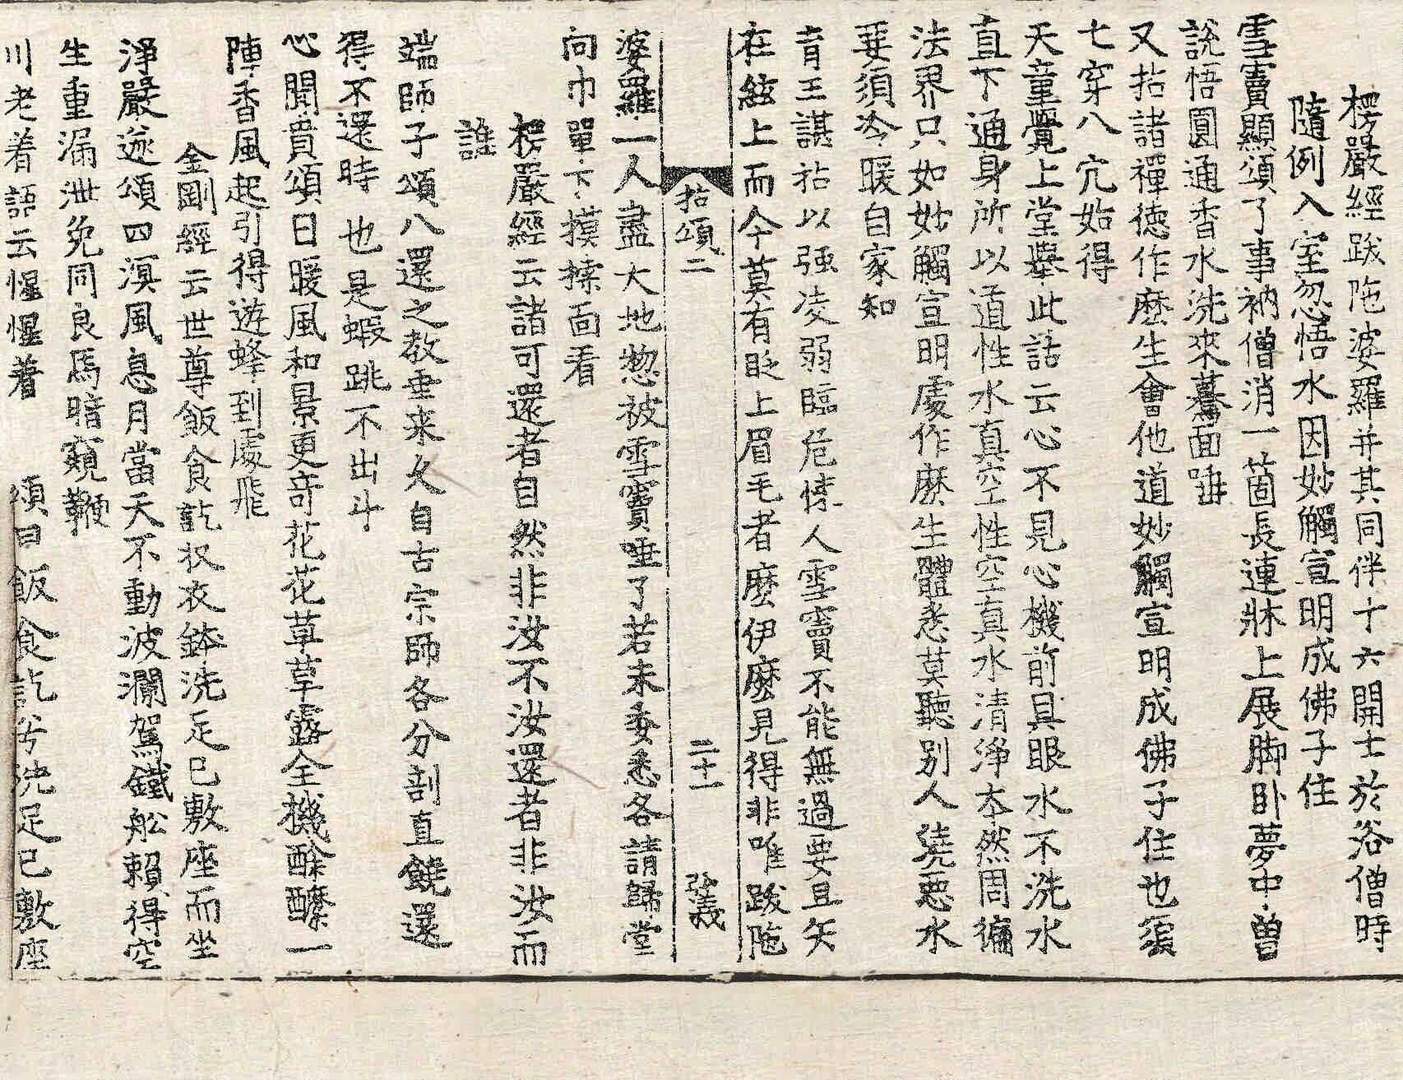 楞嚴經跋陁婆羅并其同伴十六開士於浴僧時
隨例入室忽悟水因妙觸宣明成佛子住
雪竇顯頌了事衲僧消一箇長連牀上展脚卧夢中曾
說悟圓通香水洗來驀面唾
又拈諸禪德作麽生會他道妙觸宣明成佛子住也須
七穿八穴始得
天童覺上堂舉此話云心不見心機前具眼水不洗水
直下通身所以道性水真空性空真水清淨本然周徧
法界只如妙觸宣明處作麽生體悉莫聽别人澆惡水
要須冷暖自家知
育王諶拈以强凌弱臨危悚人雪竇不能無過要且矢
在絃上而今莫有眨上眉毛者麽伊麽見得非唯跋陁
拈頌二 二十一 弘義
婆羅一人盡大地惣被雪竇唾了若未委悉各請歸堂
向巾單下摸揉面看
楞嚴經云諸可還者自然非汝不汝還者非汝而
誰
端師子頌八還之教垂来久自古宗師各分剖直饒還
得不還時 也是蝦跳不出斗
心聞賁頌日暖風和景更竒花花草草露全機酴醾一
陣香風起引得遊蜂到處飛
金剛經云世尊飯食訖收衣鉢洗足已敷座而坐
淨嚴遂頌四溟風息月當天不動波瀾駕鐵舩賴得空
生重漏泄免同良馬暗窺鞭
川老着語云惺惺着 頌曰飯食訖兮洗足已敷座